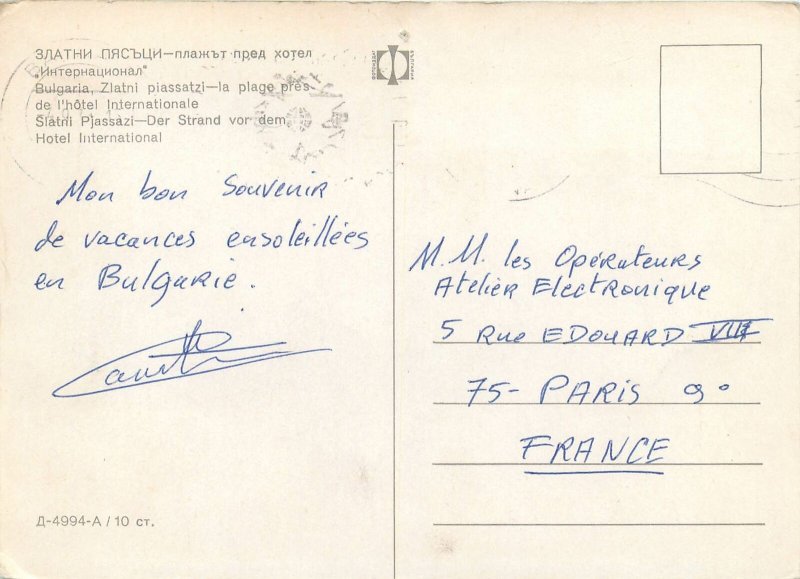 ЗЛАТНИ ПЯСЪЦИ—плажът пред хотел
"Интернационал"
Bulgaria, Zlatni piassatzi—la plage près
de l'hôtel Internationale
Slatni Pjassazi—Der Strand vor dem
Hotel International
Mon bon souvenir
de vacances ensoleillées
en Bulgarie.
M.M. les Opérateurs
Atelier Electronique
5 Rue EDOUARD VII
75- PARIS 9°
FRANCE
Д-4994-А / 10 ст.